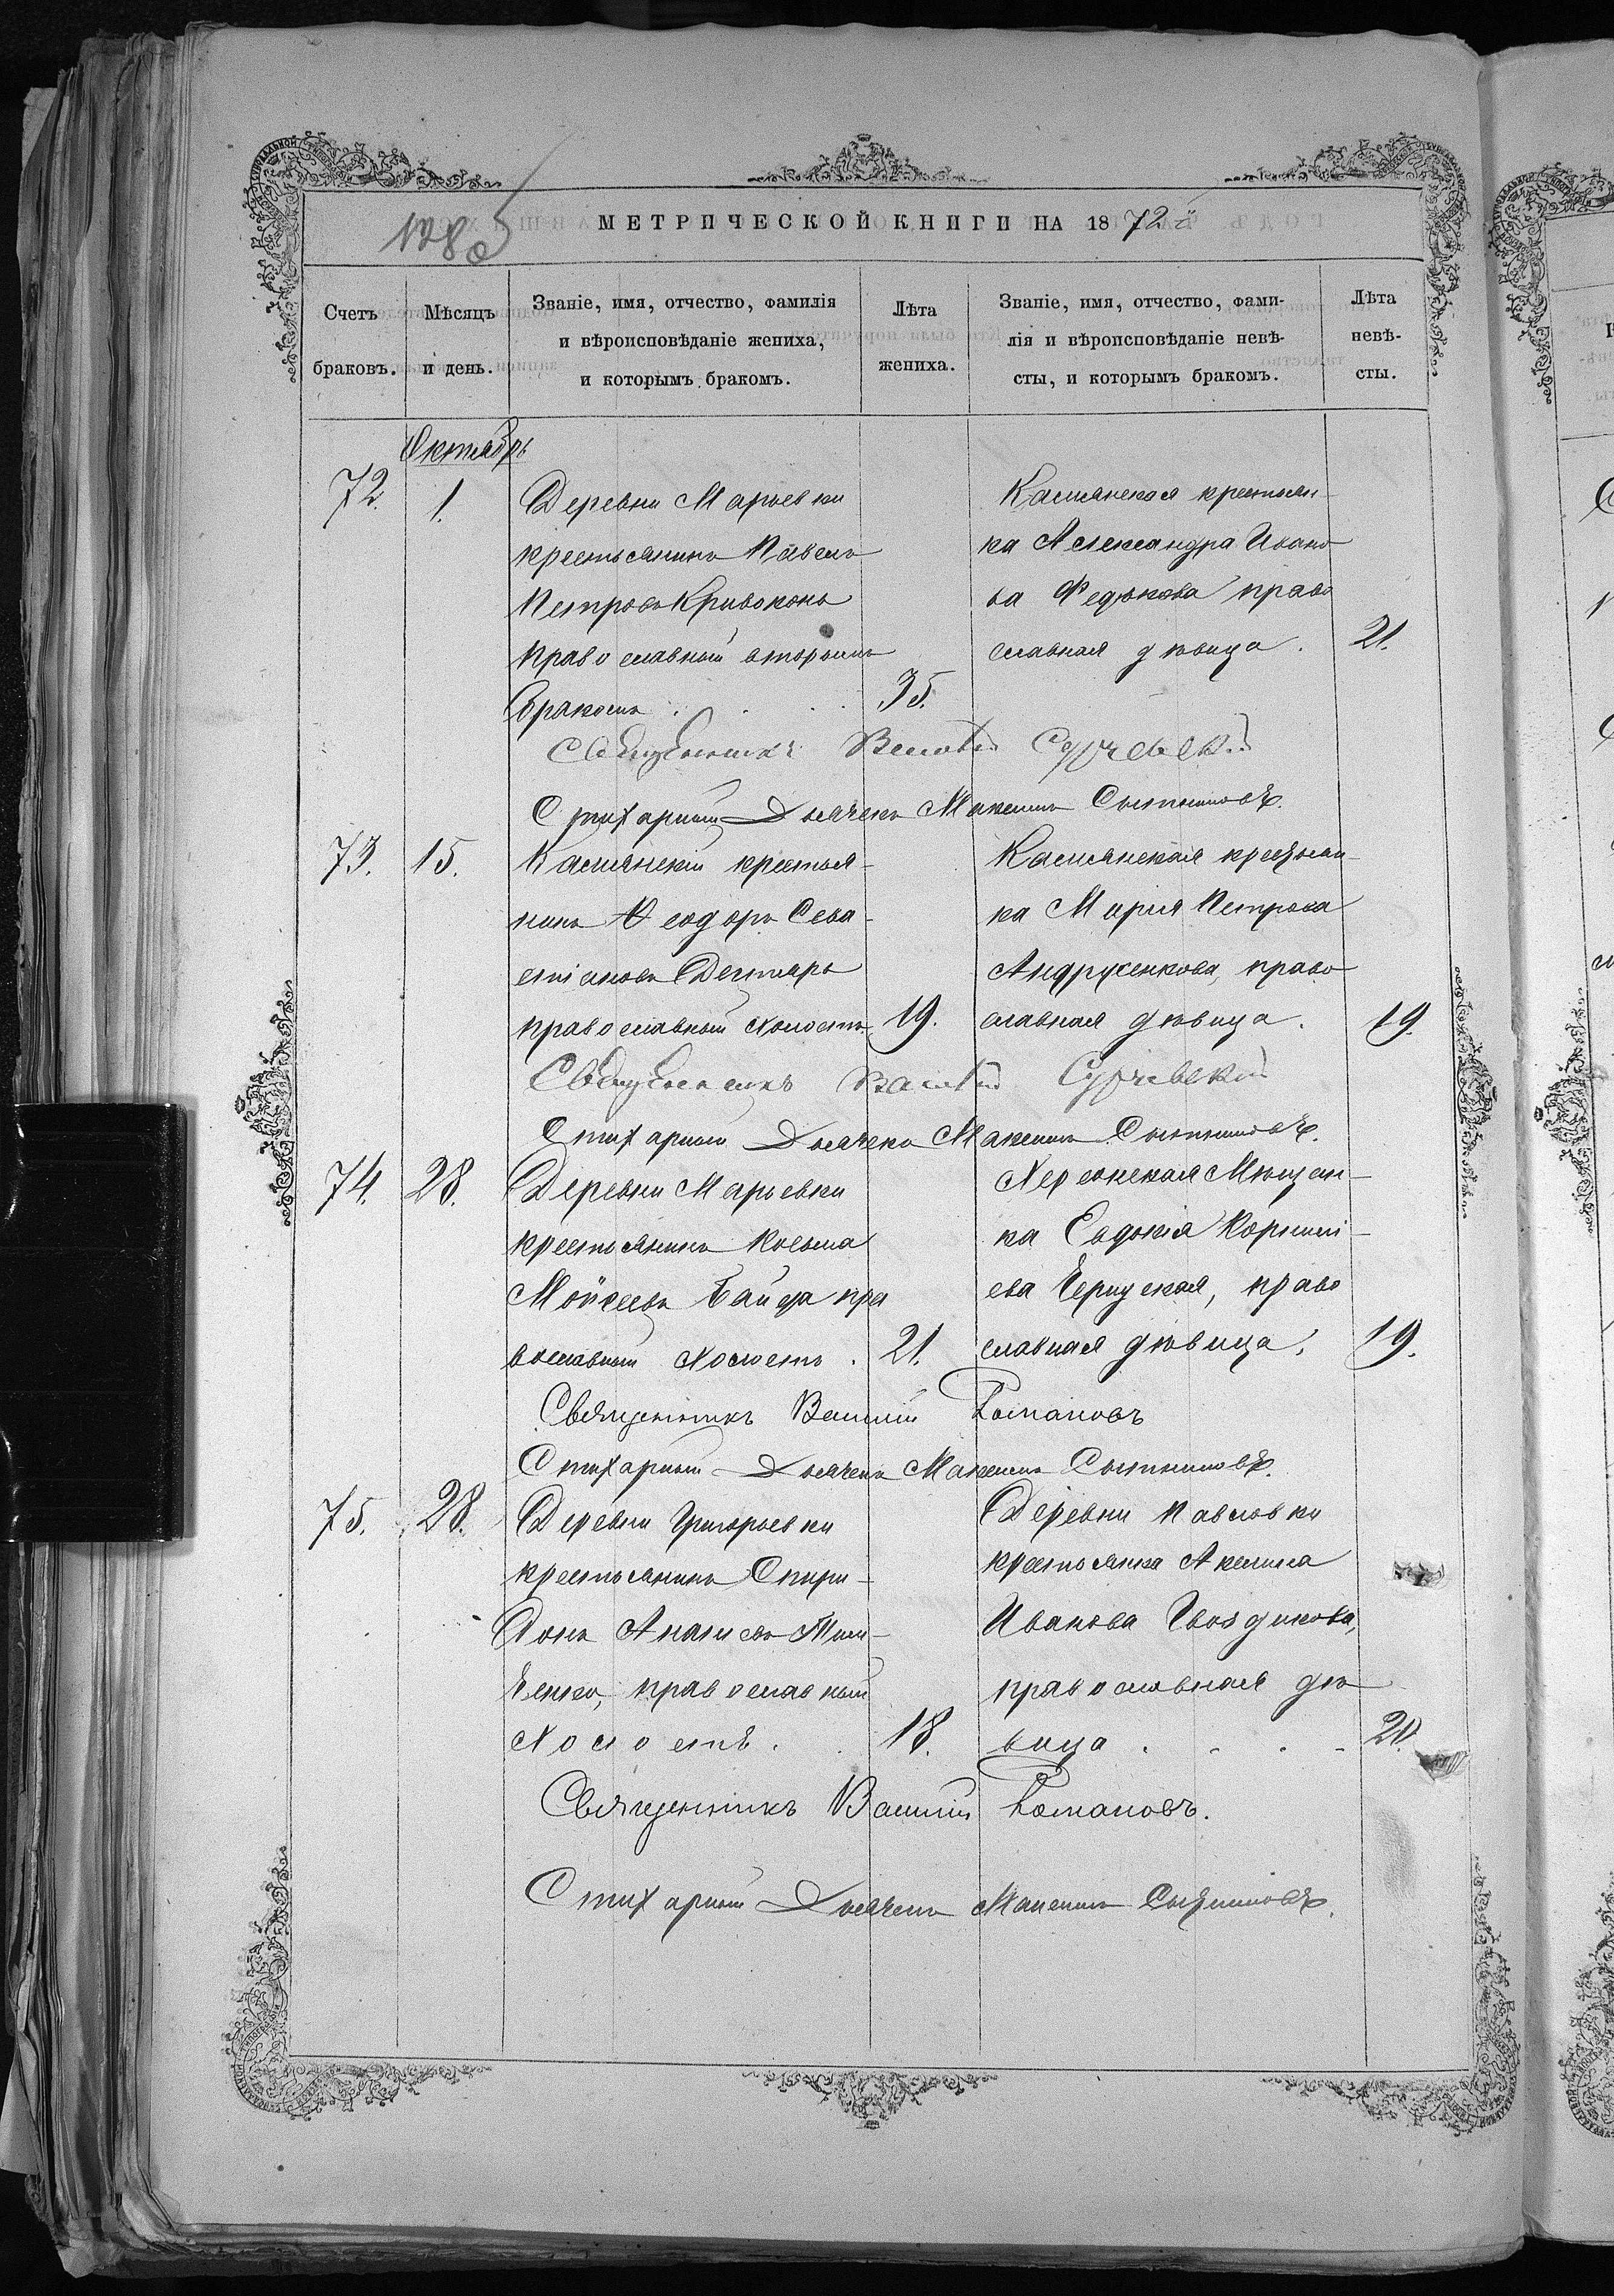 128 об
МЕТРИЧЕСКОЙ КНИГИ НА 1872й
Счетъ браковъ.
Мѣсяцъ и день.
Званіе, имя, отчество, фамилія
и вѣроисповѣданіе жениха,
и которымъ бракомъ.
Лѣта
жениха.
Званіе, имя, отчество, фами-
лія и вѣроисповѣданіе невѣ-
сты, и которымъ бракомъ.
Лѣта
невѣ-
сты.
Октябрь
72. 1.
Деревни Марьевки
крестьянинъ Павелъ
Петровъ Кривоконь
православный вторымъ
бракомъ . . . . 35.
Касшянская крестьян-
ка Александра Ивано-
ва Федькова право
славная дѣвица . 21.
Священникъ Василій
Стихарный Дьячекъ Максимъ
73. 15.
крестья-
нинъ Ѳеодоръ Сева-
стіановъ Дегтярь
православный холостъ 19.
крестьян-
ка Марія Петрова
Андрусенкова, право-
славная дѣвица . 19.
Священникъ Василій
Стихарный Дьячекъ Максимъ
74. 28.
Деревни Марьевки
крестьянинъ Косьма
Моѵсеевъ Байда пра
вославный холостъ . 21.
Херсонская Мѣщан-
ка Евдокія Корнилі-
ева право
славная дѣвица . 19.
Священникъ Василій Романовъ
Стихарный Дьячекъ Максимъ
75. 28.
Деревни Григорьевки
крестьянинъ Спири-
донъ
православный
холостъ . . 18.
Деревни Павловки
крестьянка Акилина
Иванова Гвоздикова,
православная дѣ-
вица . . . . 20.
Священникъ Василій Романовъ.
Стихарный Дьячекъ Максимъ